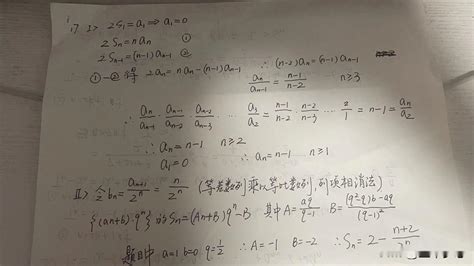 17 I> 2S₁=a₁ ⇒ a₁=0
2Sₙ=naₙ ①
2Sₙ₋₁=(n-1)aₙ₋₁ ②
①-② 得 2aₙ=naₙ-(n-1)aₙ₋₁ ∴ (n-2)aₙ=(n-1)aₙ₋₁
aₙ/aₙ₋₁ = (n-1)/(n-2) n≥3
∴ aₙ/aₙ₋₁ · aₙ₋₁/aₙ₋₂ · aₙ₋₂/aₙ₋₃ ··· a₃/a₂ = (n-1)/(n-2) · (n-2)/(n-3) ··· 2/1 = n-1 = aₙ/a₂
∴ aₙ=n-1 n≥2
a₁=0 ∴ aₙ=n-1 n≥1
II> 令 bₙ=aₙ₊₁/2ⁿ = n/2ⁿ (等差数列乘以等比数列,列项相消法)
{(an+b)·qⁿ} 的 Sₙ=(An+B)qⁿ-B 其中 A=aq/(q-1) B=((q²-q)b-aq)/(q-1)²
题目中 a=1 b=0 q=1/2 ∴ A=-1 B=-2 ∴ Sₙ=2-(n+2)/2ⁿ